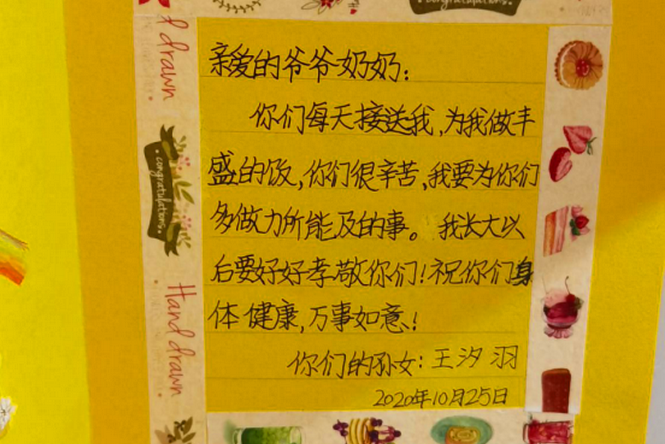 congratulations
亲爱的爷爷奶奶：
你们每天接送我，为我做丰
盛的饭，你们很辛苦，我要为你们
多做力所能及的事。我长大以
后要好好孝敬你们！祝你们身
体健康，万事如意！
你们的孙女：王汐羽
2020年10月25日
drawn
congratulations
Hand drawn